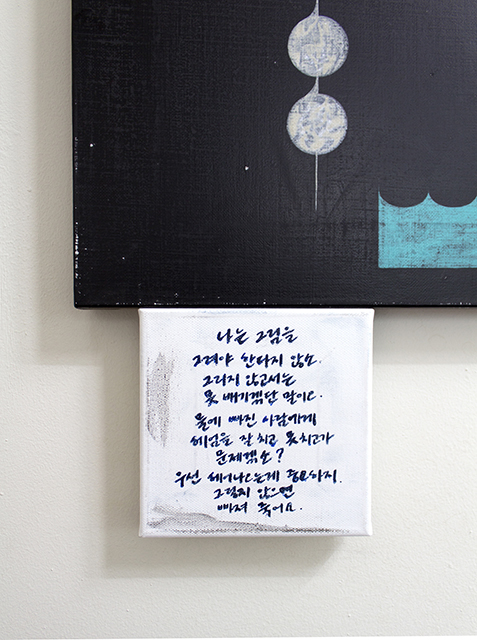 나는 그림을
그려야 한다지 않소.
그리지 않고서는
못 배기겠단 말이오.
물에 빠진 사람에게
헤엄을 잘 치고 못 치고가
문제겠소?
우선 헤어나오는게 중요하지.
그렇지 않으면
빠져 죽어요.